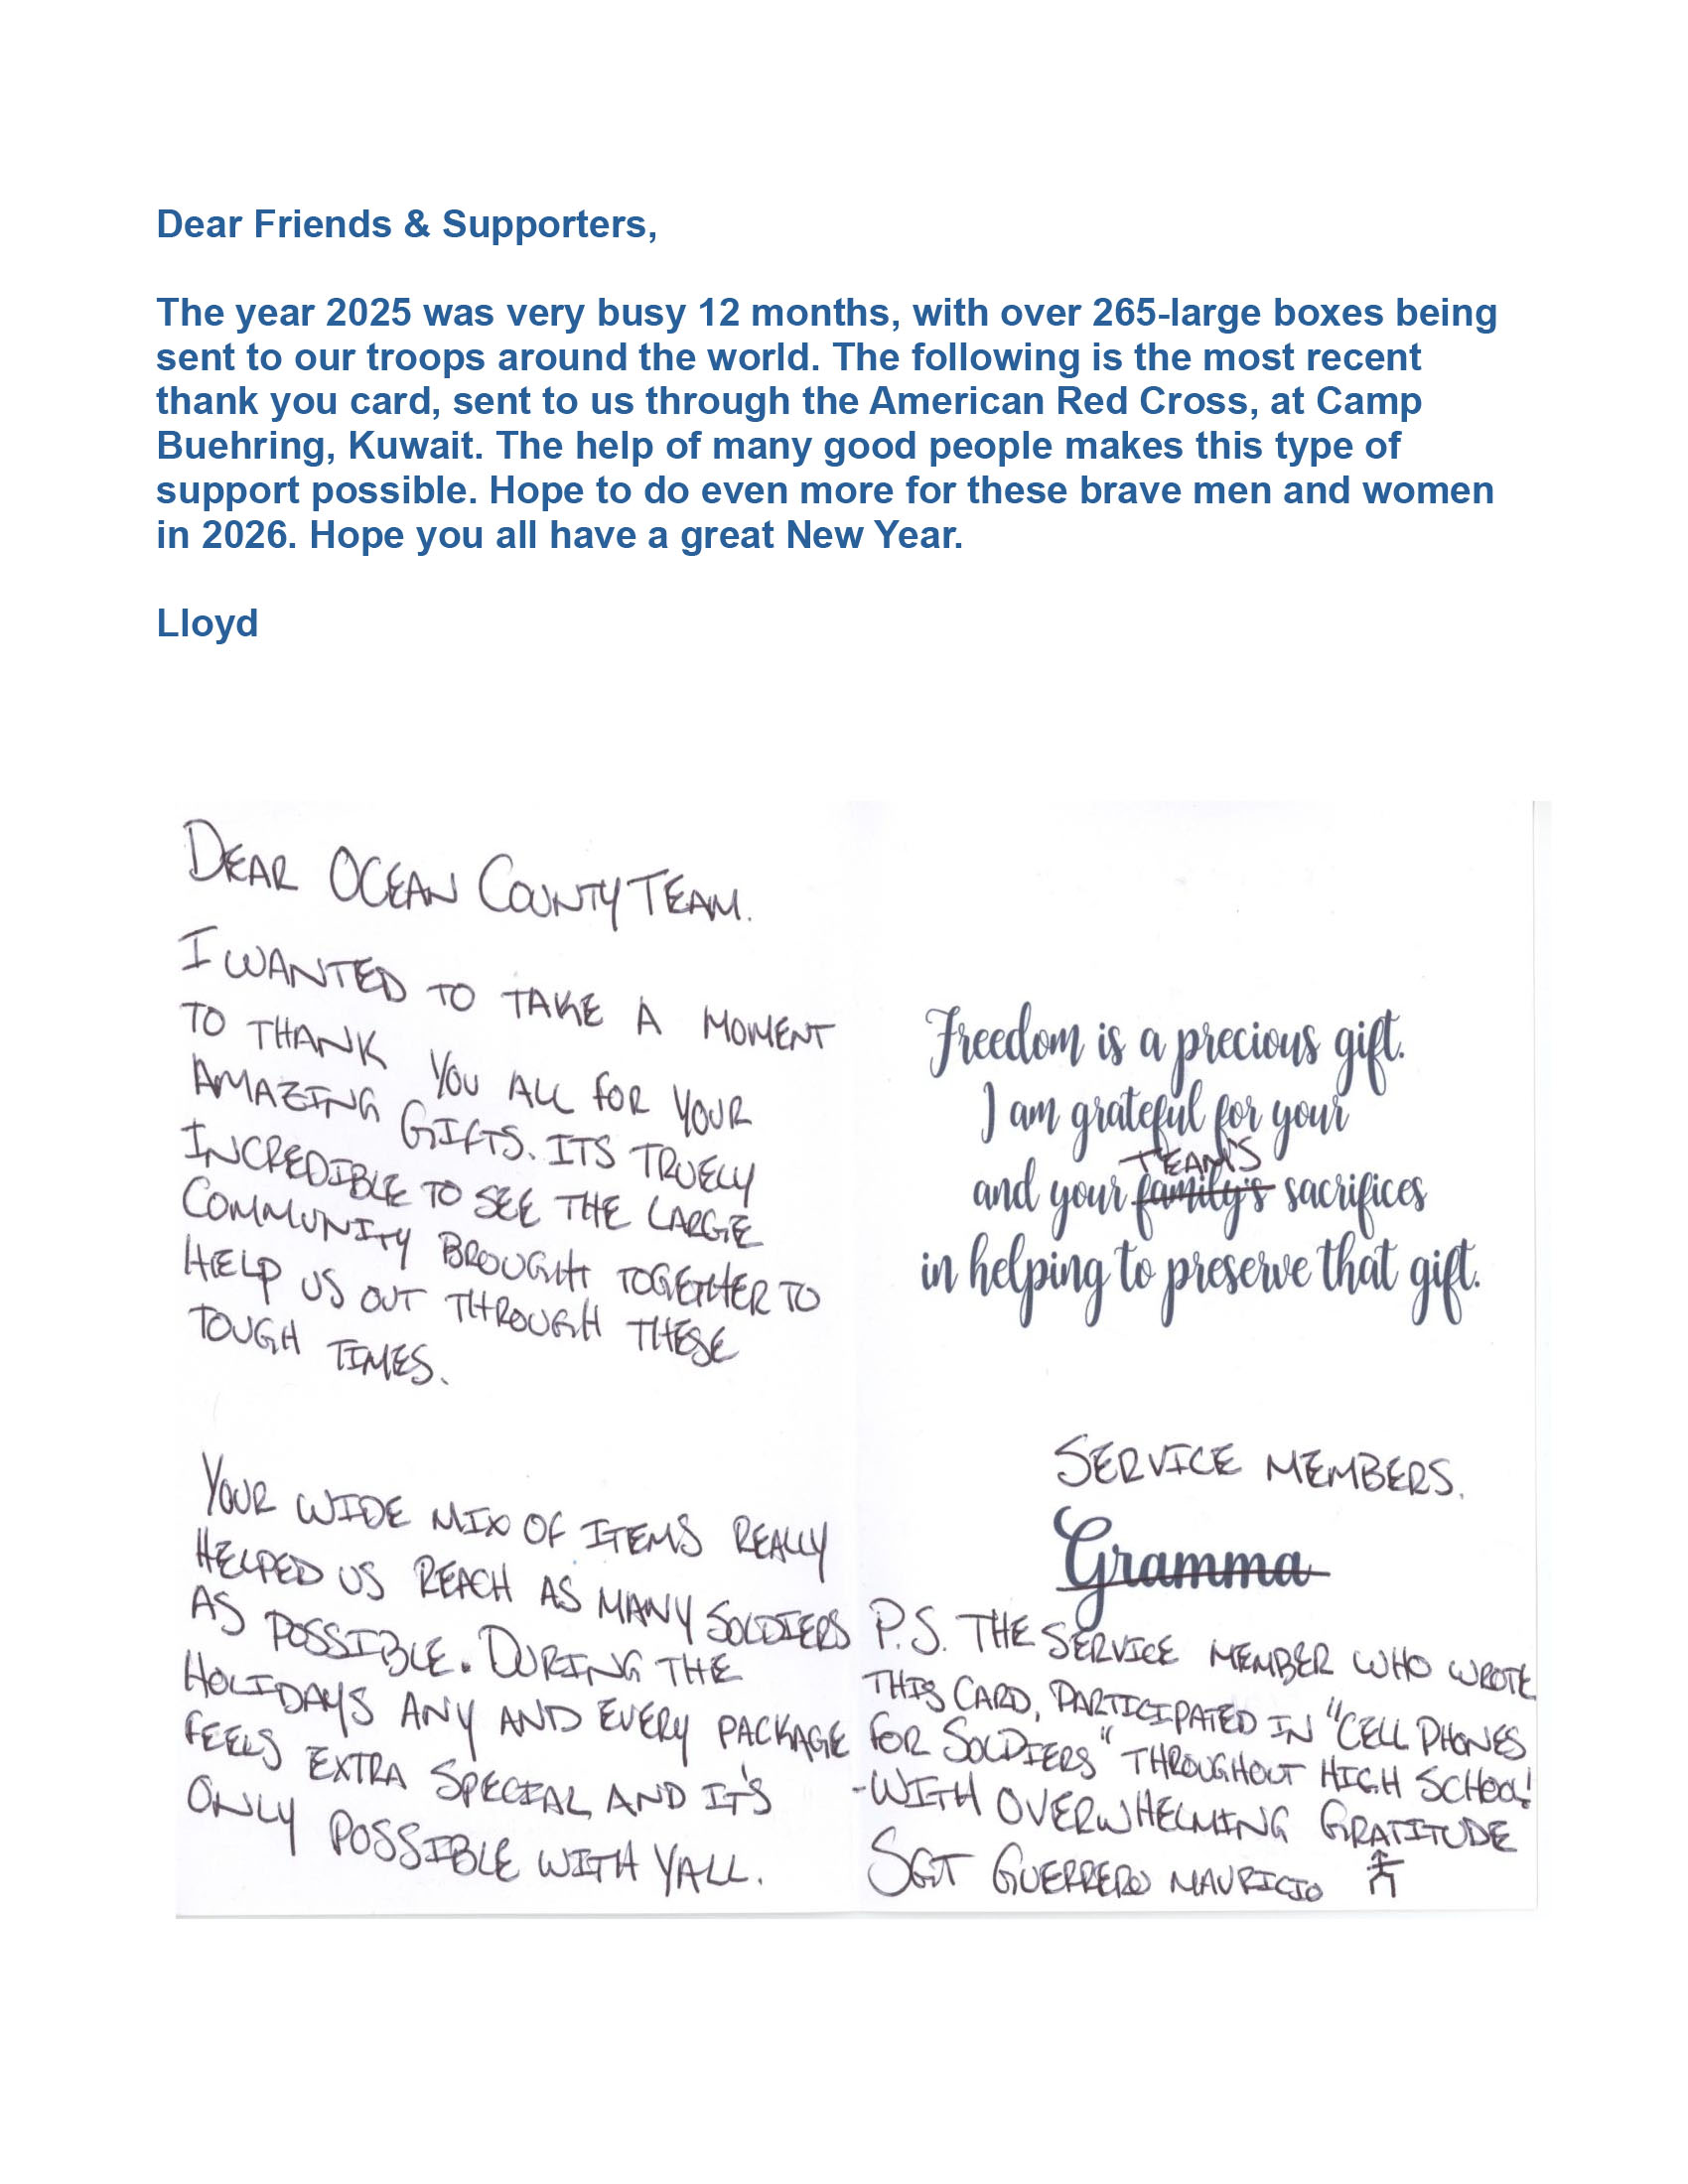 Dear Friends & Supporters,
The year 2025 was very busy 12 months, with over 265-large boxes being
sent to our troops around the world. The following is the most recent
thank you card, sent to us through the American Red Cross, at Camp
Buehring, Kuwait. The help of many good people makes this type of
support possible. Hope to do even more for these brave men and women
in 2026. Hope you all have a great New Year.
Lloyd
DEAR OCEAN COUNTY TEAM.
I WANTED TO TAKE A MOMENT
TO THANK YOU ALL FOR YOUR
AMAZING GIFTS. ITS TRUELY
INCREDIBLE TO SEE THE LARGE
COMMUNITY BROUGHT TOGETHER TO
HELP US OUT THROUGH THESE
TOUGH TIMES.
YOUR WIDE MIX OF ITEMS REALLY
HELPED US REACH AS MANY SOLDIERS
AS POSSIBLE. DURING THE
HOLIDAYS ANY AND EVERY PACKAGE
FEELS EXTRA SPECIAL, AND IT'S
ONLY POSSIBLE WITH YALL.
Freedom is a precious gift.
I am grateful for your
TEAM'S
and your family's sacrifices
in helping to preserve that gift.
SERVICE MEMBERS.
Gramma
P.S. THE SERVICE MEMBER WHO WROTE
THIS CARD, PARTICIPATED IN "CELL PHONES
FOR SOLDIERS" THROUGHOUT HIGH SCHOOL!
-WITH OVERWHELMING GRATITUDE
SGT GUERRERO MAURICIO